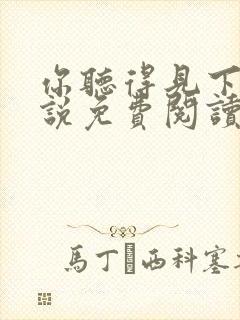 你聽得見下
說免費閱讀
馬丁 西科塞